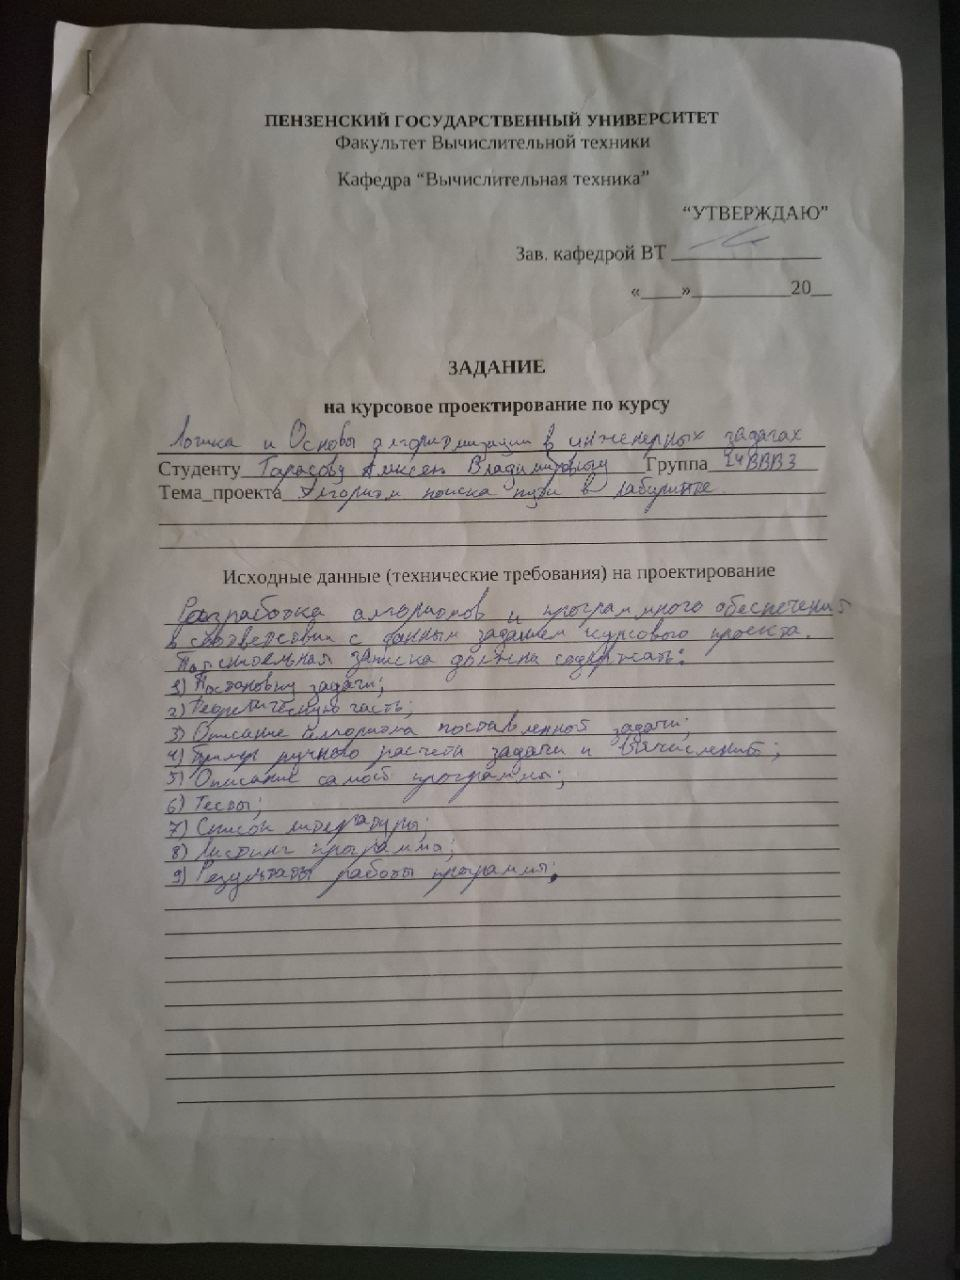 ПЕНЗЕНСКИЙ ГОСУДАРСТВЕННЫЙ УНИВЕРСИТЕТ
Факультет Вычислительной техники
Кафедра “Вычислительная техника”
“УТВЕРЖДАЮ”
Зав. кафедрой ВТ ______________
«____»__________20__
ЗАДАНИЕ
на курсовое проектирование по курсу
Логика и Основы алгоритмизации в инженерных задачах
Студенту Тарасову Алексею Владимировичу Группа 24ВВВ3
Тема_проекта Алгоритм поиска пути в лабиринте
Исходные данные (технические требования) на проектирование
Разработка алгоритмов и программного обеспечения
в соответствии с данным заданием курсового проекта.
Пояснительная записка должна содержать:
1) Постановку задачи;
2) Теоретическую часть;
3) Описание алгоритма поставленной задачи;
4) Пример ручного расчета задачи и вычислений;
5) Описание самой программы;
6) Тесты;
7) Список литературы;
8) Листинг программы;
9) Результаты работы программы;